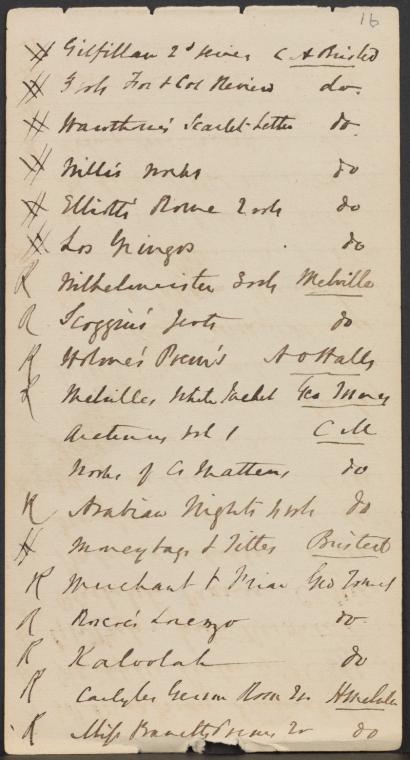 16
# Gilfillan 2d series C A Bristed
# 7 vols For & Col Review do.
# Hawthorne's Scarlet Letter do.
# Willis works do
# Elliott's Rome 2 vols do
# Los Gringos do
R Wilhelmeister 3 vols Melville
R Scoggins' Jests do
R Holme's Poems A O Halls
R Melvilles White Jacket Geo
vol 1 C M
Works of C Mattews do
R Arabian Nights vols do
# Moneybags & Titles Bristed
R Merchant & Friar Geo Jones
R Roscoe's Lorenzo do
R Kaloolah do
R Carlyles German Rom H Melville
R Miss Barretts Poems 2v do